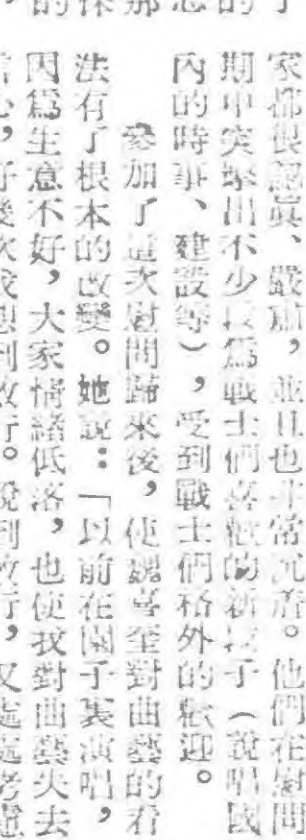 家都很認真、嚴肅，並且也非常沉着。他們在慰問
期中突擊出不少為戰士們喜歡的新段子（說唱國
內的時事、建設等），受到戰士們格外的歡迎。
參加了這次慰問歸來後，使魏喜奎對曲藝的看
法有了根本的改變。她說：「以前在園子裏演唱，
因為生意不好，大家情緒低落，也使我對曲藝失去
好幾次我想到改行。說到改行，又處處考慮